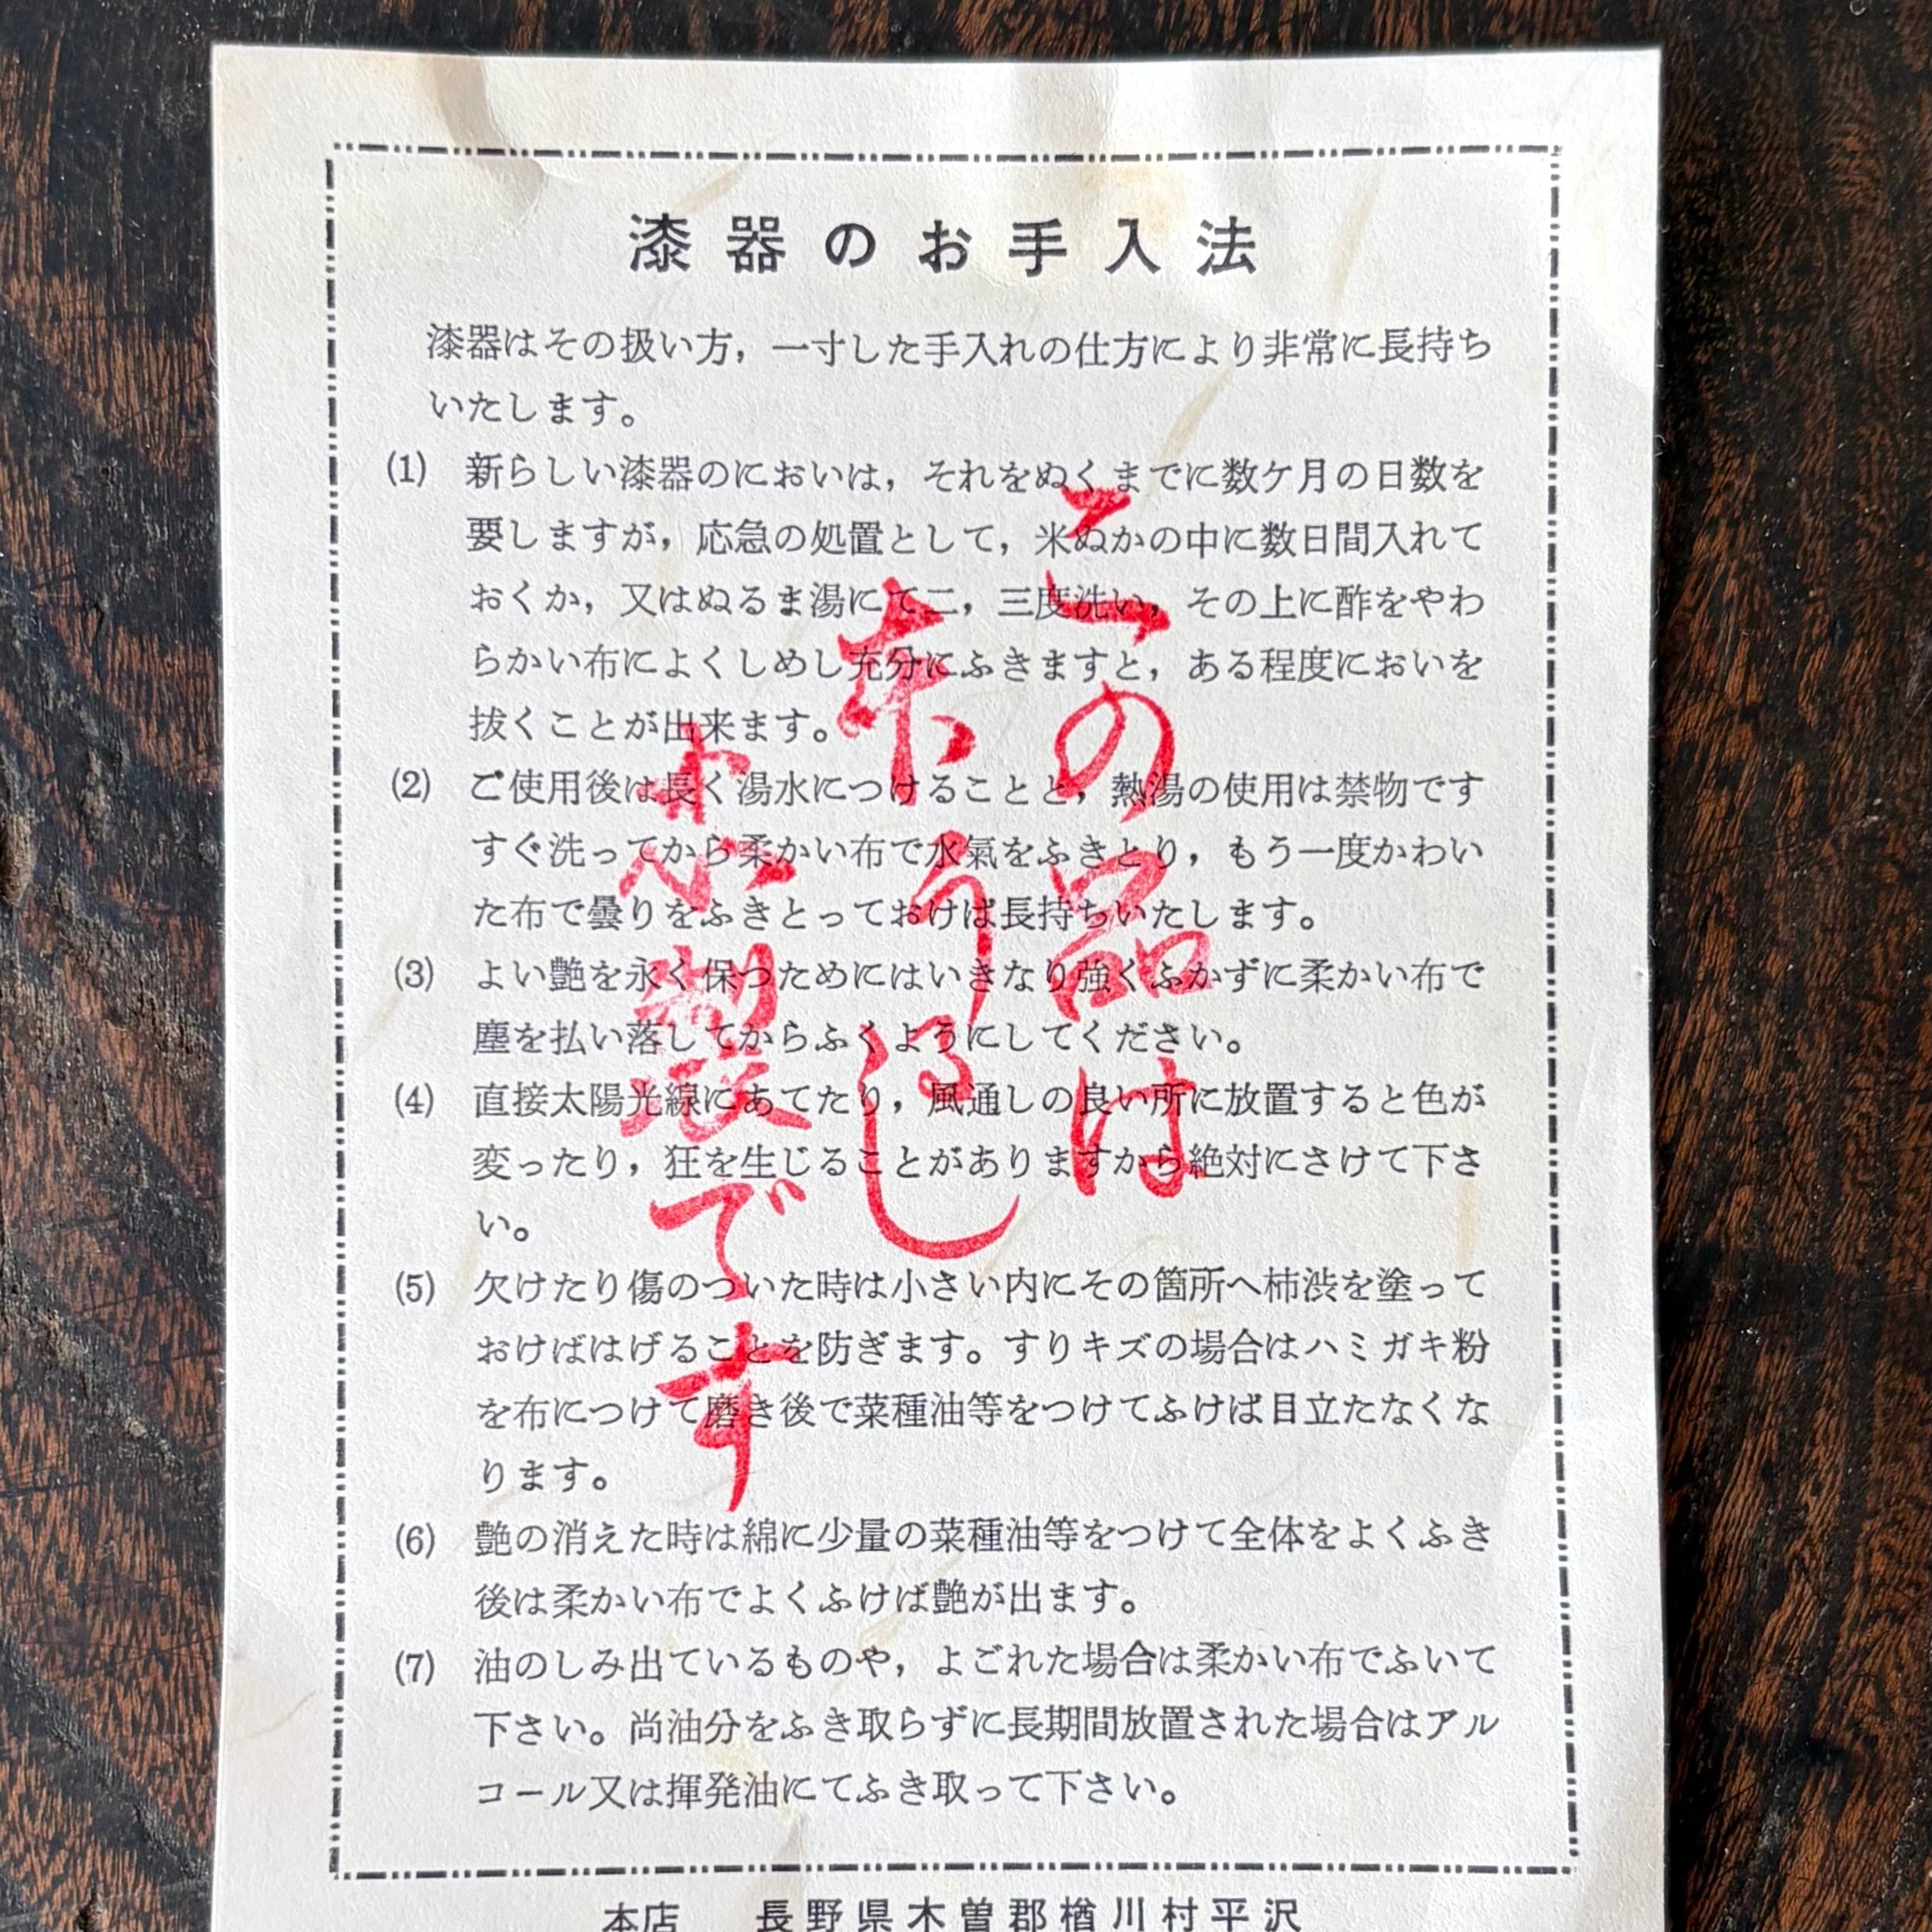 漆器のお手入法
漆器はその扱い方，一寸した手入れの仕方により非常に長持ち
いたします。
(1) 新らしい漆器のにおいは，それをぬくまでに数ケ月の日数を
要しますが，応急の処置として，米ぬかの中に数日間入れて
おくか，又はぬるま湯にて二，三度洗い，その上に酢をやわ
らかい布によくしめし充分にふきますと，ある程度においを
抜くことが出来ます。
(2) ご使用後は長く湯水につけることと，熱湯の使用は禁物です
すぐ洗ってから柔かい布で水氣をふきとり，もう一度かわい
た布で曇りをふきとっておけば長持ちいたします。
(3) よい艶を永く保つためにはいきなり強くふかずに柔かい布で
塵を払い落してからふくようにしてください。
(4) 直接太陽光線にあてたり，風通しの良い所に放置すると色が
変ったり，狂を生じることがありますから絶対にさけて下さ
い。
(5) 欠けたり傷のついた時は小さい内にその箇所へ柿渋を塗って
おけばはげることを防ぎます。すりキズの場合はハミガキ粉
を布につけて磨き後で菜種油等をつけてふけば目立たなくな
ります。
(6) 艶の消えた時は綿に少量の菜種油等をつけて全体をよくふき
後は柔かい布でよくふけば艶が出ます。
(7) 油のしみ出ているものや，よごれた場合は柔かい布でふいて
下さい。尚油分をふき取らずに長期間放置された場合はアル
コール又は揮発油にてふき取って下さい。
この品は
本うるし
木地製です
本店 長野県木曽郡楢川村平沢